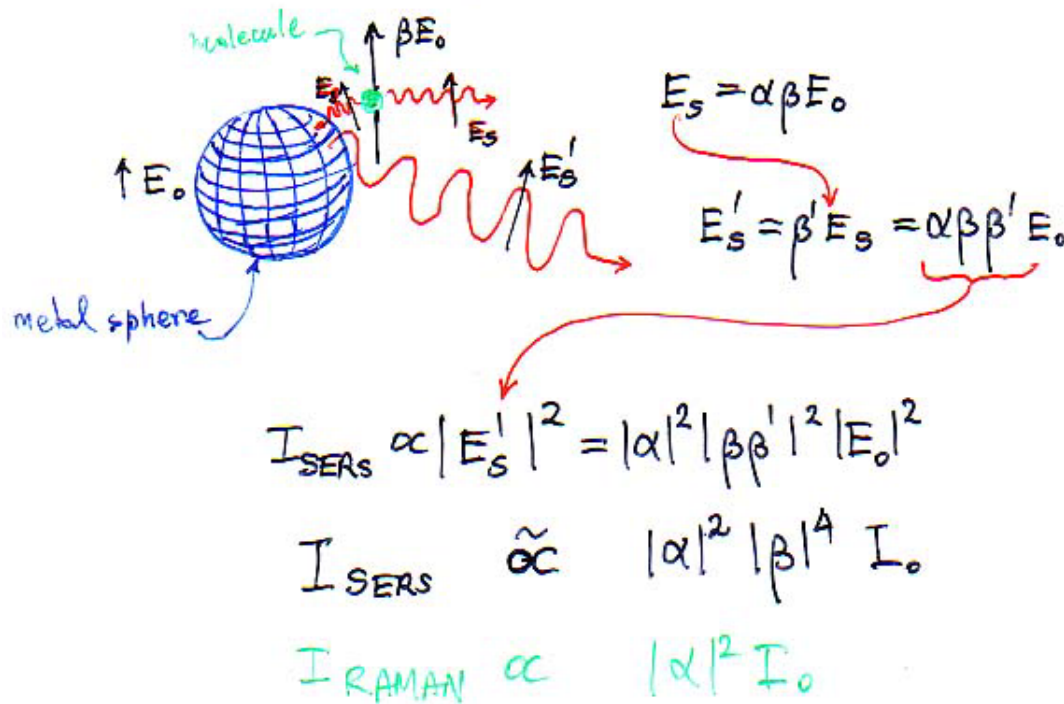 molecule
βE₀
E_s
E_s
↑ E₀
E_s'
metal sphere
E_s = αβE₀
E_s' = β'E_s = αββ'E₀
I_SERS ∝ |E_s'|² = |α|² |ββ'|² |E₀|²
I_SERS ∝̃ |α|² |β|⁴ I₀
I_RAMAN ∝ |α|² I₀